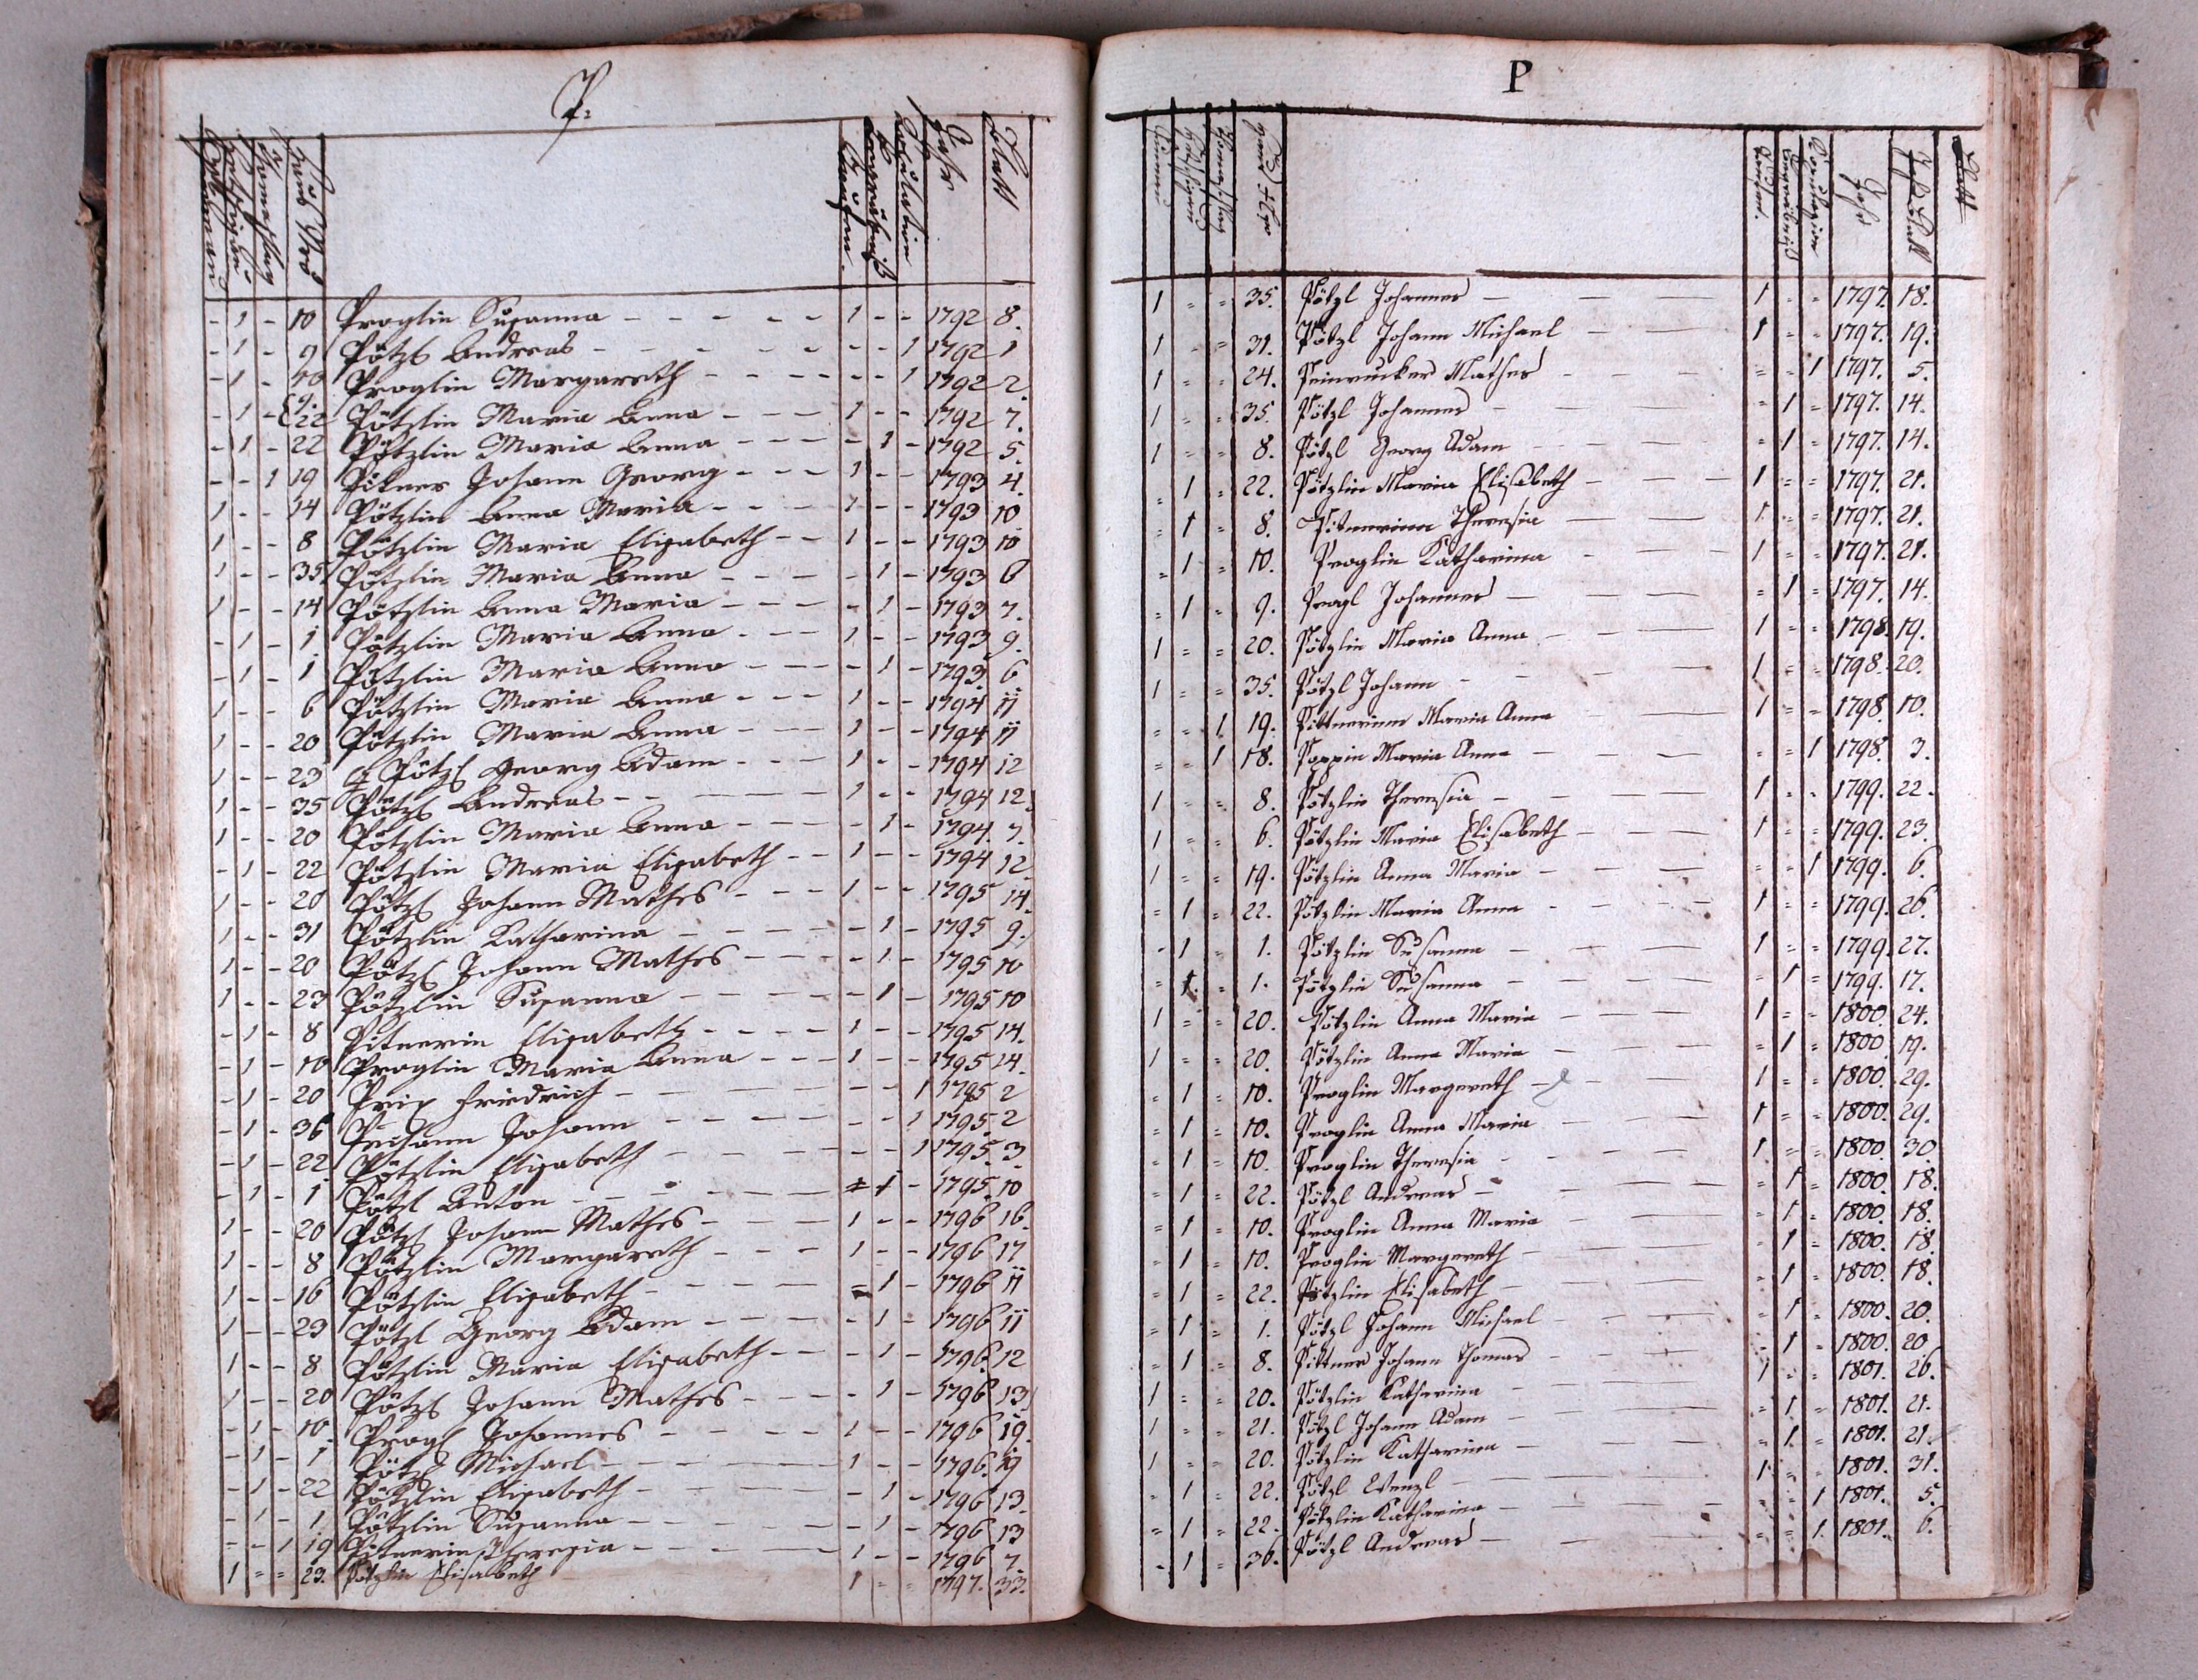 P:
Haus Nro
Taufen.
Begräbniß
Copulation
Jahr
Blatt
- 1 - 10 Proglin Susanna - - - 1 - - 1792 8.
- 1 - 9 Pötzl Andreas - - - - - 1 1792 1
- 1 - 40 Proglin Margareth - - - - - 1 1792 2.
- 1 - 22 Pötzlin Maria Anna - - - 1 - - 1792 7.
- 1 - 22 Pötzlin Maria Anna - - - - 1 - 1792 5.
- - 1 19 Pitner Johann Georg - - - 1 - - 1793 4.
1 - - 14 Pötzlin Anna Maria - - - 1 - - 1793 10.
1 - - 8 Pötzlin Maria Elisabeth - - 1 - - 1793 10
1 - - 35 Pötzlin Maria Anna - - - - 1 - 1793 6
1 - - 14 Pötzlin Anna Maria - - - - 1 - 1793 7.
- 1 - 1 Pötzlin Maria Anna - - - 1 - - 1793 9.
- 1 - 1 Pötzlin Maria Anna - - - - 1 - 1793 6
1 - - 6 Pötzlin Maria Anna - - - 1 - - 1794 11
1 - - 20 Pötzlin Maria Anna - - - 1 - - 1794 11
1 - - 23 Pötzl Georg Adam - - - 1 - - 1794 12
1 - - 35 Pötzl Andreas - - - 1 - - 1794 12.
1 - - 20 Pötzlin Maria Anna - - - - 1 - 1794. 7.
- 1 - 22 Pötzlin Maria Elisabeth - - 1 - - 1794 12
1 - - 20 Pötzl Johann Mathes - - - 1 - - 1795 14.
1 - - 31 Pötzlin Katharina - - - - 1 - 1795 9.
1 - - 20 Pötzl Johann Mathes - - - - 1 - 1795 10
1 - - 23 Pötzlin Susanna - - - - 1 - 1795 10
- 1 - 8 Pitnerin Elisabeth - - - 1 - - 1795 14.
- 1 - 10 Proglin Maria Anna - - - 1 - - 1795 24.
- 1 - 20 Friedrich - - - - - 1 1795 2
- 1 - 36 Johann - - - - - 1 1795. 2
- 1 - 22 Pötzlin Elisabeth - - - - - 1 1795. 3.
- 1 - 1 Pötzl Anton - - - 1 - 1795. 10
1 - - 20 Pötzl Johann Mathes - - - 1 - - 1796 16.
1 - - 8 Pötzlin Margareth - - - 1 - - 1796 17
1 - - 16 Pötzlin Elisabeth - - - - 1 - 1796 11
1 - - 23 Pötzl Georg Adam - - - - 1 - 1796 11
1 - - 8 Pötzlin Maria Elisabeth - - - 1 - 1796. 12
1 - - 20 Pötzl Johann Mathes - - - - 1 - 1796 13
- 1 - 10. Progl Johannes - - - 1 - - 1796 19.
- 1 - 1 Pötzl Michael - - - 1 - - 1796. 19
- 1 - 22 Pötzlin Elisabeth - - - - 1 - 1796 13.
- 1 - 1. Pötzlin Susanna - - - - 1 - 1796 13
- - 1 19 Pitnerin Theresia - - - 1 - - 1796 7.
1 = = 23. Pötzlin Elisabeth 1 = = 1797. 33.
P
Haus Nro
Taufen.
Begräbniß
Copulazion
Jahr
Blatt
1 = = 35. Pötzl Johannes - - - 1 = = 1797. 18.
1 = = 31. Pötzl Johann Michael - - 1 = = 1797. 19.
1 = = 24. Mathes - - - = = 1 1797. 5.
1 = = 35. Pötzl Johannes - - = 1 = 1797. 14.
1 = = 8. Pötzl Georg Adam - - - = 1 = 1797. 14.
= 1 = 22. Pötzlin Maria Elisabeth - - - 1 = = 1797. 21.
= 1 = 8. Pitnerinn Theresia - - 1. = = 1797. 21.
= 1 = 10. Proglin Katharina - - - 1 = = 1797. 21.
= 1 = 9. Progl Johannes - - - = 1 = 1797. 14.
1 = = 20. Pötzlin Maria Anna - - - 1 = = 1798. 19.
1 = = 35. Pötzl Johann - - - 1 = = 1798. 20.
= = 1. 19. Pittnerinn Maria Anna - - 1 = = 1798. 10.
= = 1 18. Poppin Maria Anna - - - = = 1 1798. 3.
1 = = 8. Pötzlin Theresia - - - 1 = = 1799. 22.
1 = = 6. Pötzlin Maria Elisabeth - - - 1 = = 1799. 23.
1 = = 19. Pötzlin Anna Maria - - - = = 1 1799. 6.
= 1 = 22. Pötzlin Maria Anna - - - 1 = = 1799. 26.
= 1 = 1. Pötzlin Susanna - - - 1 = = 1799. 27.
= 1. = 1. Pötzlin Susanna - - - = 1 = 1799. 17.
1 = = 20. Pötzlin Anna Maria - - - 1 = = 1800. 24.
1 = = 20. Pötzlin Anna Maria - - - = 1 = 1800. 19.
= 1 = 10. Proglin Margereth - - - 1 = = 1800. 29.
= 1 = 10. Proglin Anna Maria - - - 1 = = 1800. 29.
= 1 = 10. Proglin Theresia - - - 1 = = 1800. 30.
= 1 = 22. Pötzl Andreas - - - = 1 = 1800. 18.
= 1 = 10. Proglin Anna Maria - - - = 1 = 1800. 18.
= 1 = 10. Proglin Margereth - - - = 1 = 1800. 18.
= 1 = 22. Pötzlin Elisabeth - - - = 1 = 1800. 18.
= 1 = 1. Pötzl Johann Michael - - - = 1 = 1800. 20.
= 1 = 8. Pittner Johann Thomas - - - = 1 = 1800. 20
1 = = 20. Pötzlin Katharina - - - 1 = = 1801. 26.
1 = = 21. Pötzl Johann Adam - - - = 1 = 1801. 21.
1 = = 20. Pötzlin Katharina - - - = 1. = 1801. 21.
= 1 = 22. Pötzl Wenzl - - - 1. = = 1801. 31.
= 1 = 22. Pötzlin Katharina - - - = = 1 1801. 5.
= 1 = 36. Pötzl Andreas - - = = 1. 1801. 6.